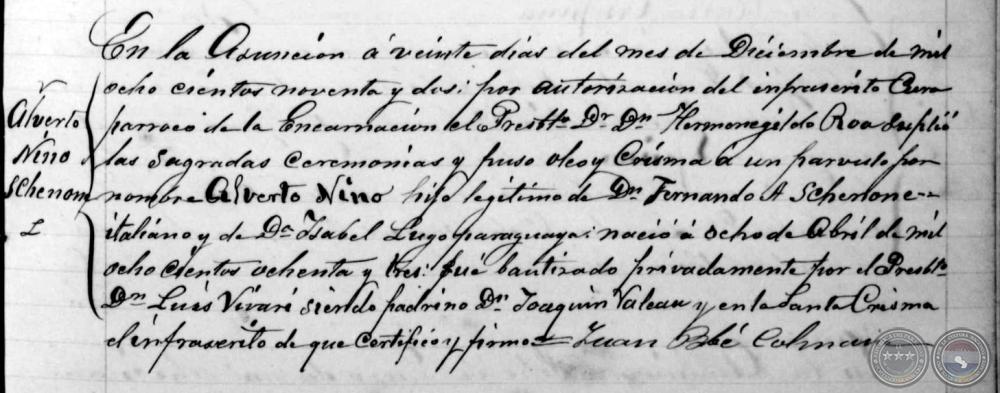 En la Asuncion á veinte dias del mes de Diciembre de mil
ocho cientos noventa y dos: por autorizacion del infrascrito Cura
parroco de la Encarnacion el Presbto. Dr. Dn. Hermonegildo Roa suplió
las sagradas ceremonias y puso oleo y Crisma á un parvulo por
nombre Alverto Nino hijo legitimo de Dn. Fernando A Schenone
italiano y de Da. Isabel Lugo paraguaya: nació á ocho de Abril de mil
ocho cientos ochenta y tres: fué bautizado privadamente por el Presbto.
Dn. Luis Vivari siendo padrino Dn. Joaquin y en la Santa Crisma
el infrascrito de que certifico y firmo Juan
Alverto
Nino
Schenone
L